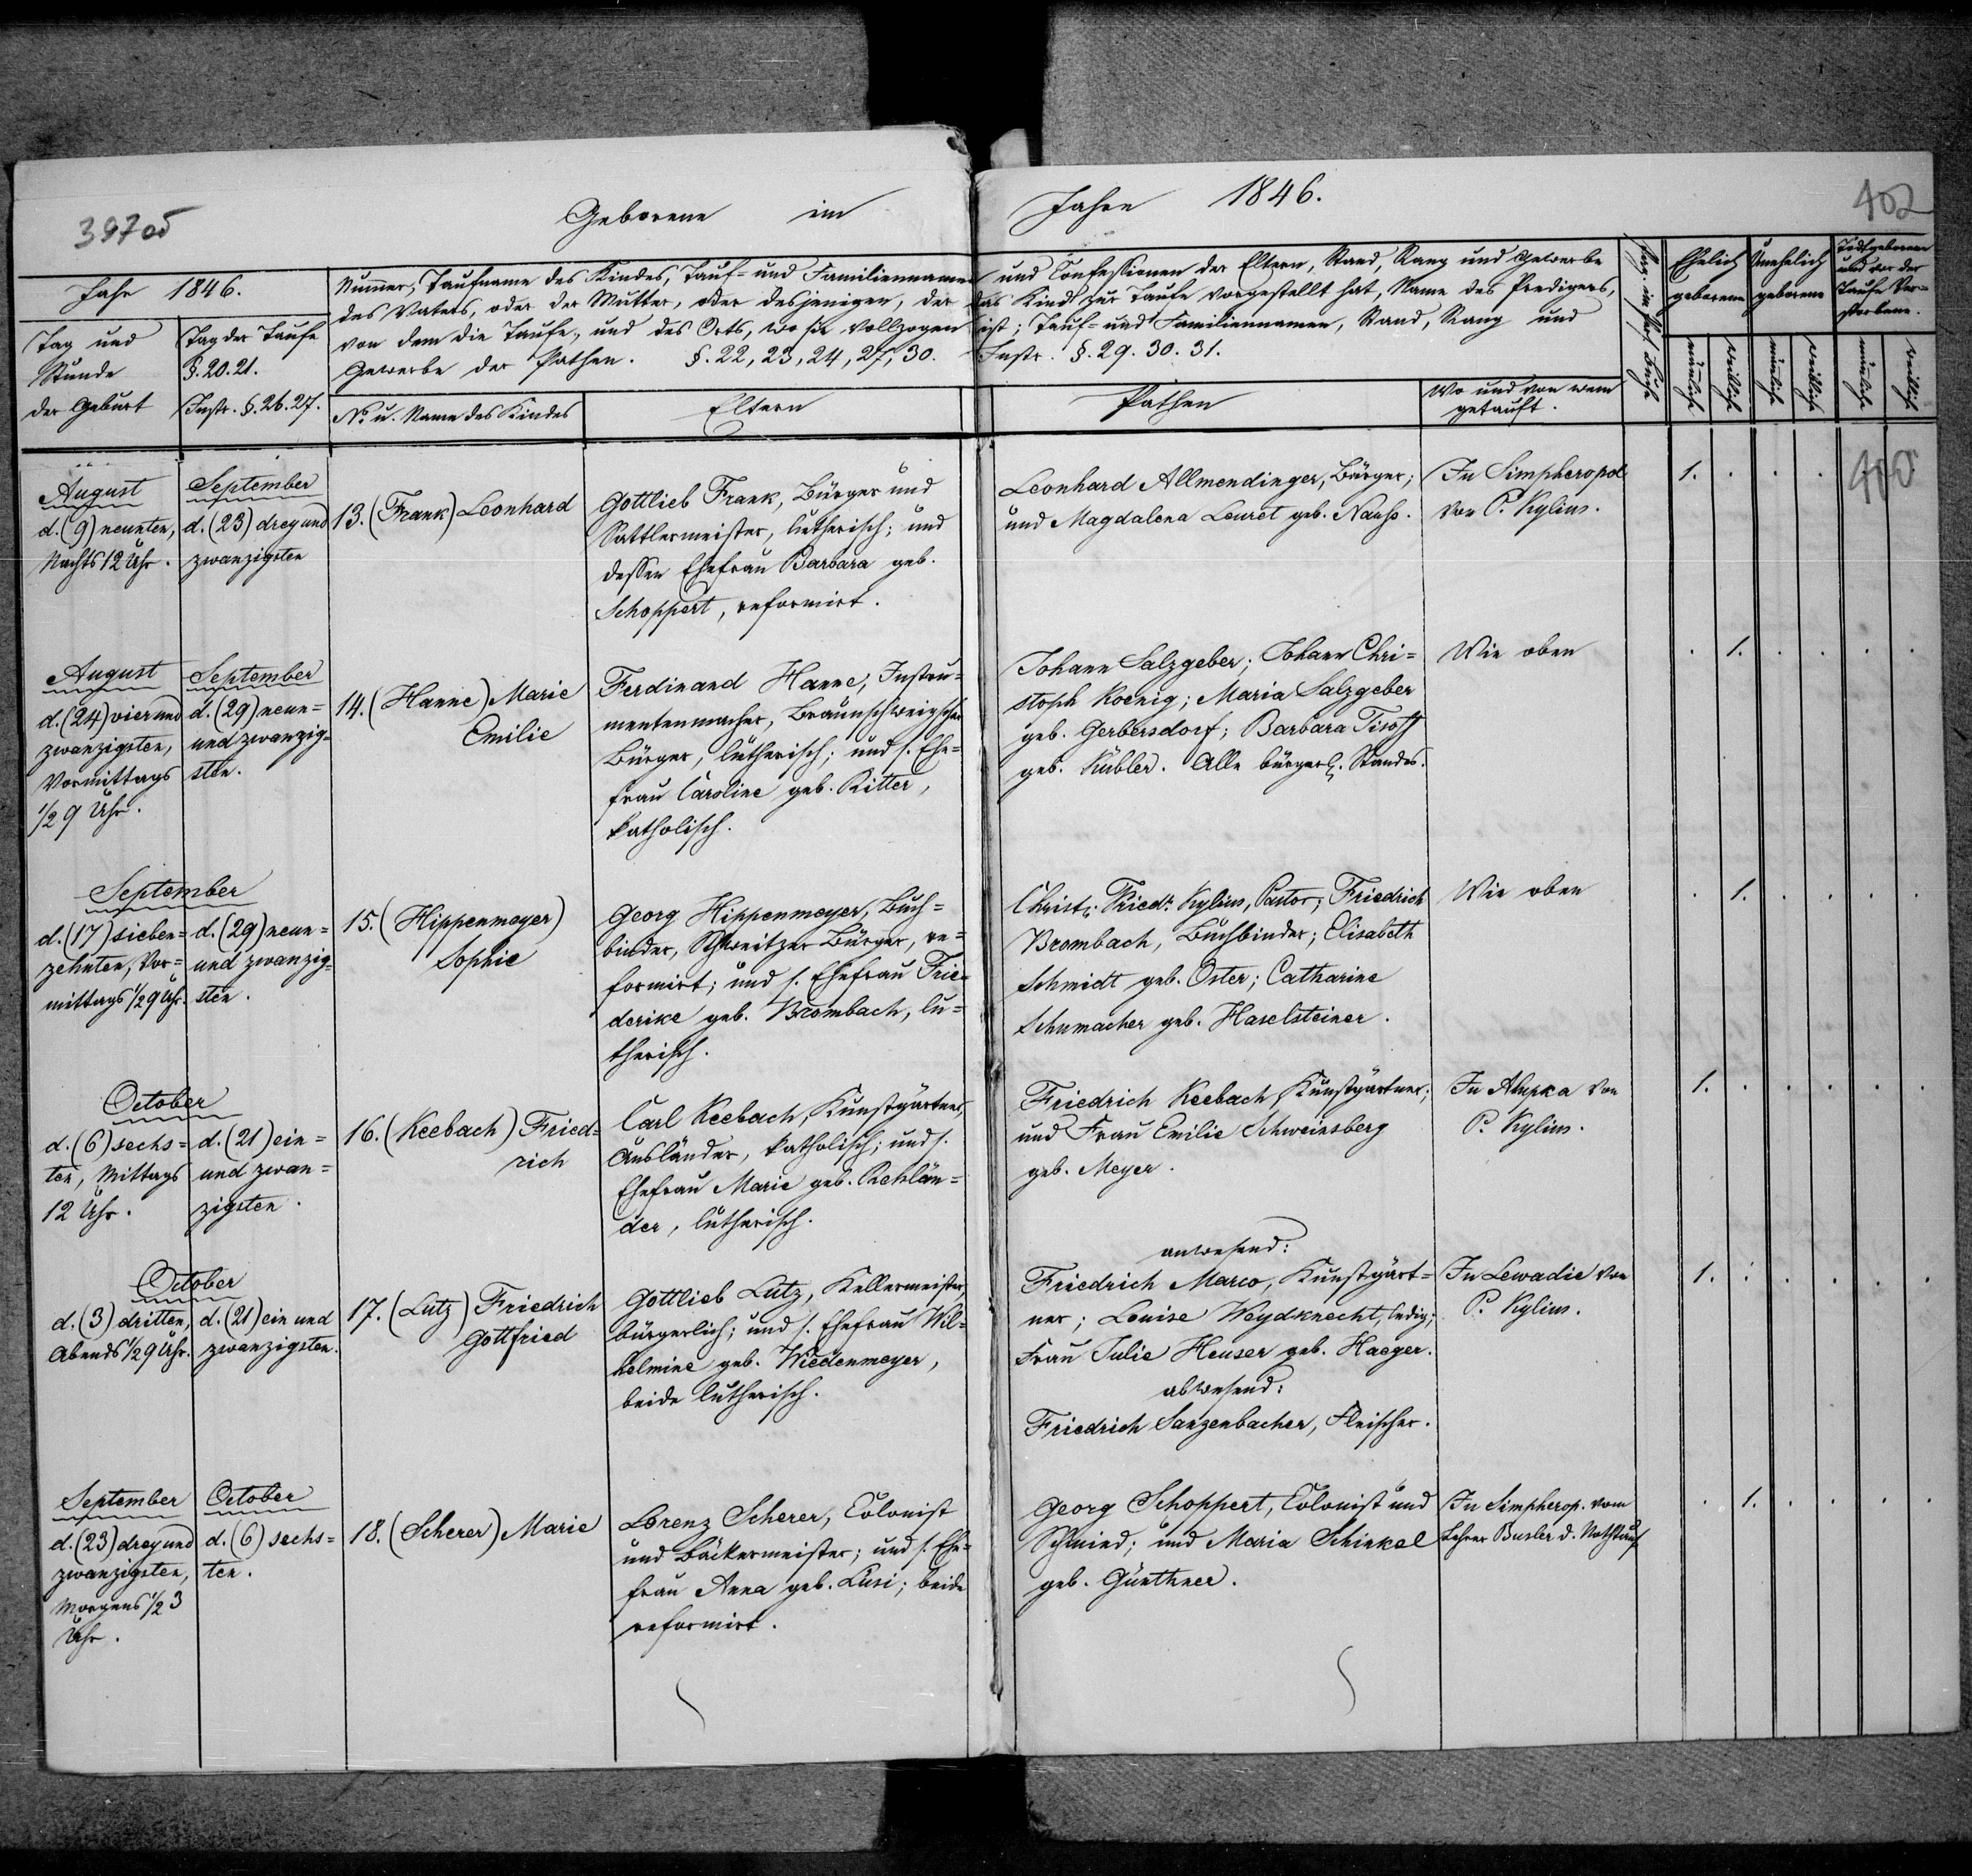 397об
Geborene im Jahre 1846.
402
Jahr 1846.
Tag und Stunde der Geburt
Tag der Taufe
§. 20. 21.
Instr. §. 26. 27.
Nummer, Taufname des Kindes, Tauf- und Familiennamen und Confessionen der Eltern, Stand, Rang und Gewerbe
des Vaters, oder der Mutter, oder desjenigen, der das Kind zur Taufe vorgestellt hat, Name des Predigers,
von dem die Taufe, und des Orts, wo sie vollzogen ist; Tauf- und Familiennamen, Stand, Rang und
Gewerbe der Pathen. §. 22, 23, 24, 27, 30. Instr. §. 29. 30. 31.
No u. Name des Kindes
Eltern
Pathen
Wo und von wem
getauft.
Ehelich
geborene
Unehelich
geborene
Todtgeborene
und vor der
Taufe Ver=
storbene.
männlich
weiblich
männlich
weiblich
männlich
weiblich
August
d. (9) neunten,
Nachts 12 Uhr.
September
d. (23) drey und
zwanzigsten
13. (Frank) Leonhard
Gottlieb Frank, Bürger und
Sattlermeister, lutherisch; und
dessen Ehefrau Barbara geb.
Schoppert, reformirt.
Leonhard Allmendinger, Bürger;
und Magdalena Leuret geb.
In Simpheropol
von P. Kylius.
1. . . .
August
d. (24) vier und
zwanzigsten,
Vormittags
1/2 9 Uhr.
September
d. (29) neun=
und zwanzig=
sten.
14. (Hanne) Marie
Emilie
Ferdinand Hanne, Instru=
mentenmacher, Braunschweigscher
Bürger, lutherisch; und s. Ehe=
frau Caroline geb. Ritter,
katholisch.
Johann Salzgeber; Johann Chri=
stoph Koenig; Maria Salzgeber
geb. Gerbersdorf; Barbara
geb. Kübler. Alle bürgerl. Standes.
Wie oben
. 1. . . . .
September
d. (17) sieben=
zehnten, Vor=
mittags 1/2 9 Uhr.
d. (29) neun=
und zwanzig=
sten.
15. (Hippenmeyer)
Sophie
Georg Hippenmeyer, Buch=
binder, Schweitzer Bürger, re=
formirt; und s. Ehefrau Frie=
derike geb. Brombach, lu=
therisch.
Christ. Friedr. Kylius, Pastor; Friedrich
Brombach, Buchbinder; Elisabeth
Schmidt geb. Oster; Catharine
Schumacher geb. Haselsteiner.
Wie oben
. 1. . . . .
October
d. (6) sechs=
ten, Mittags
12 Uhr.
d. (21) ein=
und zwan=
zigsten.
16. (Keebach) Fried=
rich
Carl Keebach, Kunstgärtner,
Ausländer, katholisch; und s.
Ehefrau Marie geb. Rehlän=
der, lutherisch.
Friedrich Keebach, Kunstgärtner;
und Frau Emilie Schweinsberg
geb. Meyer.
In Alupka von
P. Kylius.
1. . . . . .
October
d. (3) dritten,
Abends 1/2 9 Uhr.
d. (21) ein und
zwanzigsten.
17. (Lutz) Friedrich
Gottfried
Gottlieb Lutz, Kellermeister,
bürgerlich; und s. Ehefrau Wil=
helmine geb. Wiedenmeyer,
beide lutherisch.
anwesend:
Friedrich Marco, Kunstgärt=
ner; Louise Weydknecht, ledig;
Frau Julie Heuser geb. Haeger.
abwesend:
Friedrich Sanzenbacher, Fleischer.
In Lewadie von
P. Kylius.
1. . . . . .
September
d. (23) drey und
zwanzigsten,
Morgens 1/2 3
Uhr.
October
d. (6) sechs=
ten.
18. (Scherer) Marie
Lorenz Scherer, Colonist
und Bäckermeister; und s. Ehe=
frau Anna geb. Lusi; beide
reformirt.
Georg Schoppert, Colonist und
Schmied; und Maria Schinkel
geb. Günthner.
In Simpherop. vom
Lehrer Busler d. Nothtauf
. 1. . . . .